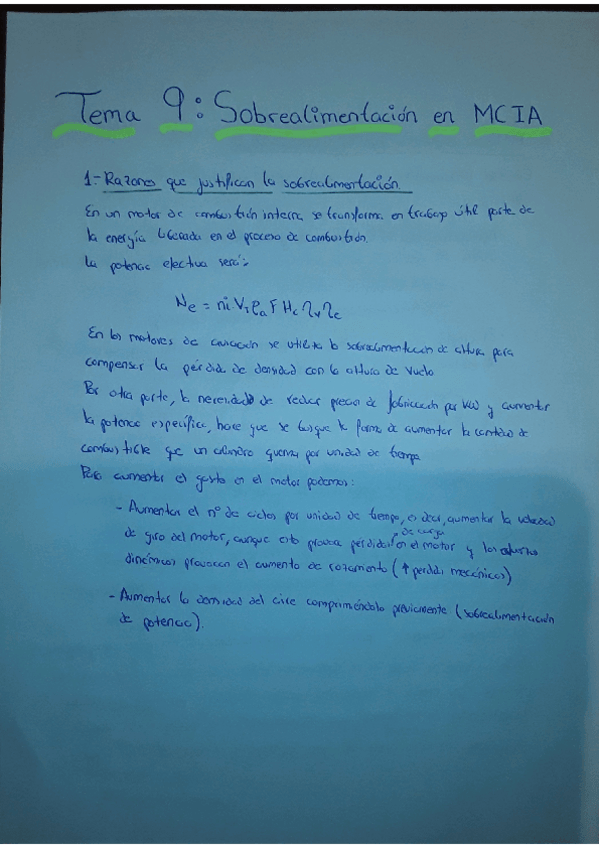 Tema 9: Sobrealimentación en MCIA
1.- Razones que justifican la sobrealimentación.
En un motor de combustión interna se transforma en trabajo útil parte de
la energía liberada en el proceso de combustión.
La potencia efectiva será:
Ne = n i VT ρa F Hc ηv ηe
En los motores de aviación se utiliza la sobrealimentación de altura para
compensar la pérdida de densidad con la altura de vuelo
Por otra parte, la necesidad de reducir precio de fabricación por kW y aumentar
la potencia específica, hace que se busque la forma de aumentar la cantidad de
combustible que un cilindro quema por unidad de tiempo
Para aumentar el gasto en el motor podemos:
- Aumentar el nº de ciclos por unidad de tiempo, es decir, aumentar la velocidad
de giro del motor, aunque esto provoca pérdidas de carga en el motor y los esfuerzos
dinámicos provocan el aumento de rozamiento (↑ perdidas mecánicas)
- Aumentar la densidad del aire comprimiéndolo previamente (sobrealimentación
de potencia).